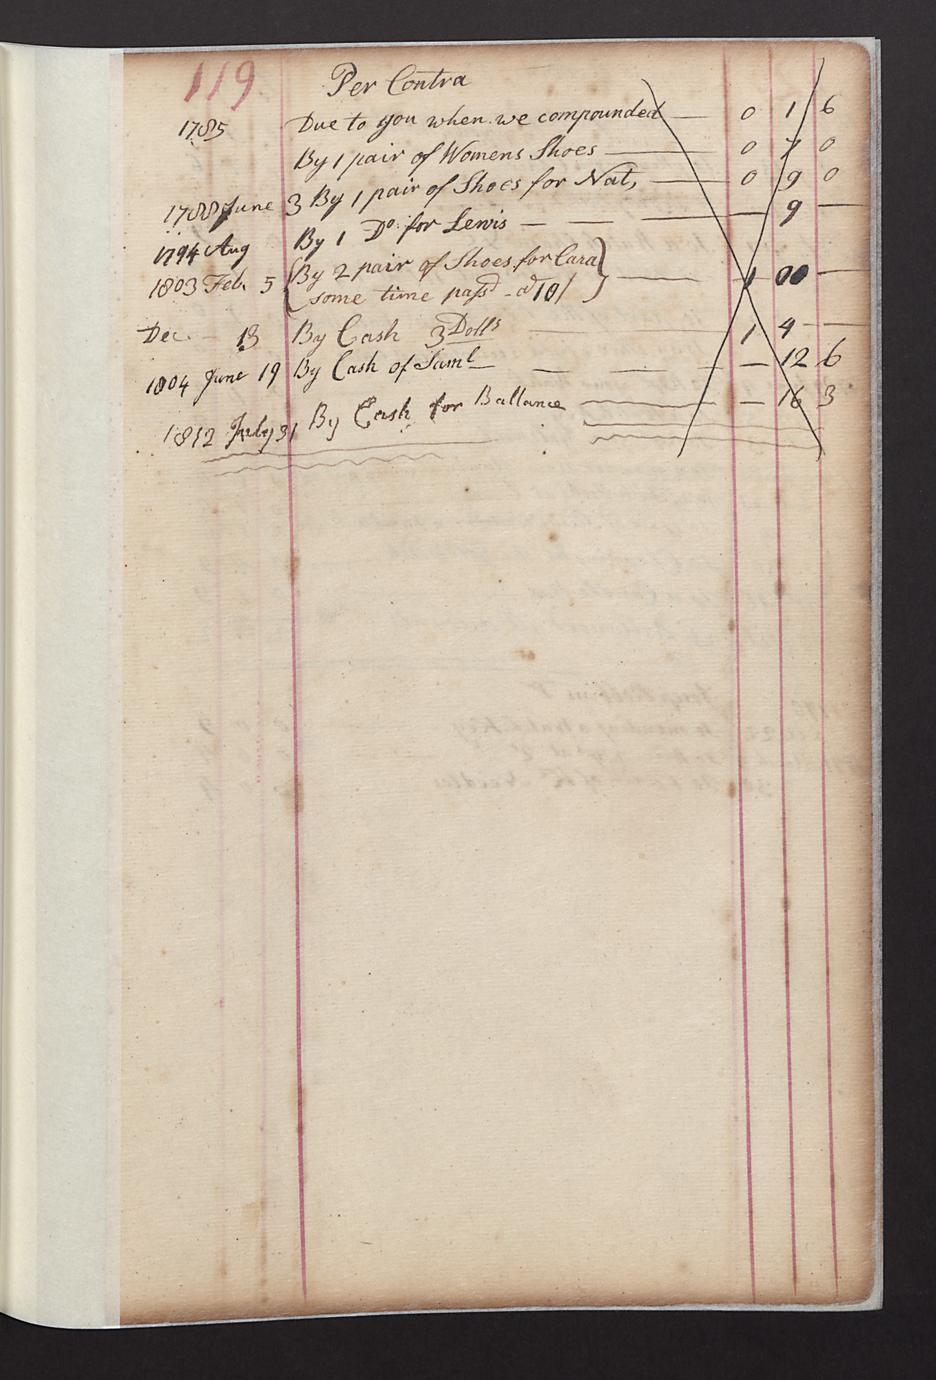 119 Per Contra
1785 Due to you when we compounded — 0 1 6
By 1 pair of Womens Shoes — 0 7 0
By 1 pair of Shoes for Nat, — 0 9 0
1788 June 3 By 1 Do. for Lewis — — 9 —
1794 Aug
1803 Feb 5 By 2 pair of Shoes for Cara
some time passd - a 10/ — 1 00 —
Dec. - 13 By Cash 3 Dolls — 1 4 —
1804 June 19 By Cash of Saml — — — 12 6
1812 July 31 By Cash for Ballance — — 16 3